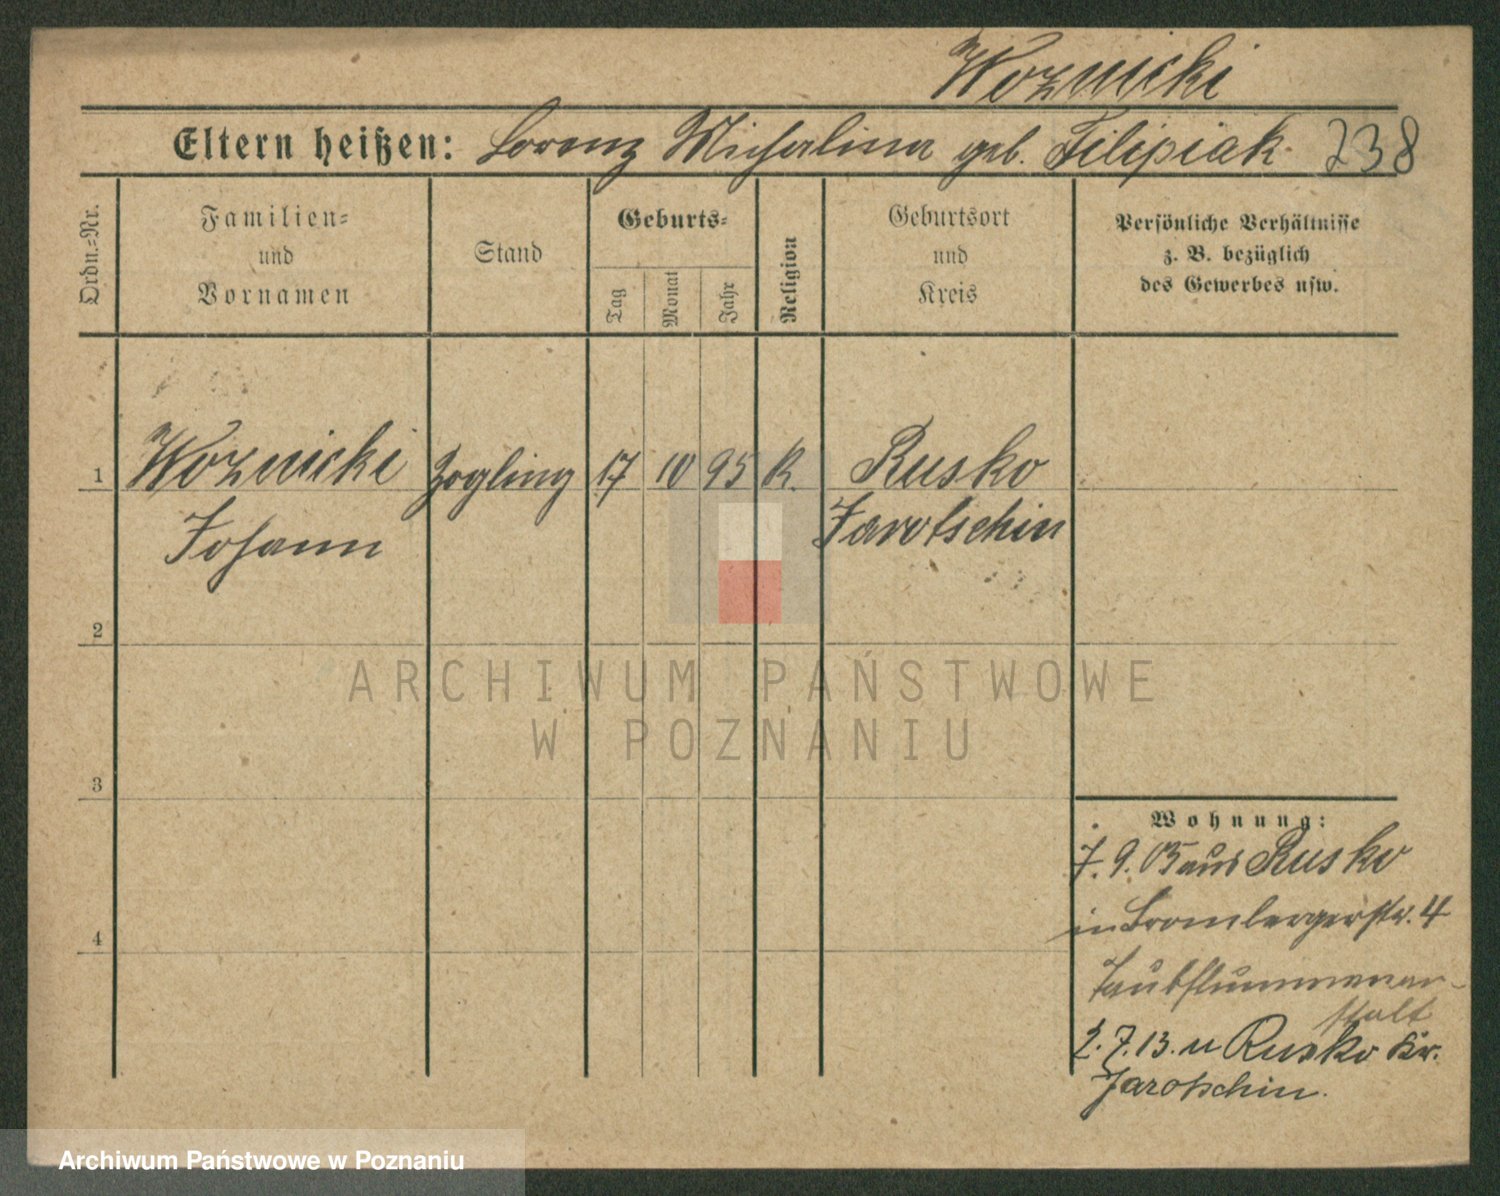 Woznicki
Eltern heißen: Lorenz Michalina geb. Filipiak 238
Ordn.=Nr.
Familien=
und
Vornamen
Stand
Geburts=
Tag
Monat
Jahr
Religion
Geburtsort
und
Kreis
Persönliche Verhältnisse
z. B. bezüglich
des Gewerbes usw.
1 Woznicki Zögling 17 10 95 K. Rusko
Johann Jarotschin
2
3
4
Wohnung:
7. 9. 05 aus Rusko
in Brombergerstr. 4
Taubstummenan-
stalt
2. 7. 13. n Rusko Kr.
Jarotschin.
ARCHIWUM PAŃSTWOWE
W POZNANIU
Archiwum Państwowe w Poznaniu